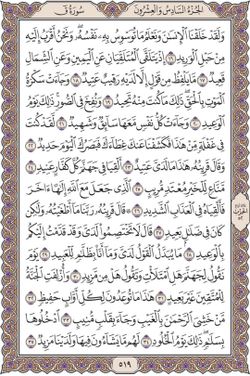 الجزء السادس والعشرون
سورة ق
ولقد خلقنا الإنسان ونعلم ما توسوس به نفسه ونحن أقرب إليه
من حبل الوريد ١٦ إذ يتلقى المتلقيان عن اليمين وعن الشمال
قعيد ١٧ ما يلفظ من قول إلا لديه رقيب عتيد ١٨ وجاءت سكرة
الموت بالحق ذلك ما كنت منه تحيد ١٩ ونفخ في الصور ذلك يوم
الوعيد ٢٠ وجاءت كل نفس معها سائق وشهيد ٢١ لقد كنت
في غفلة من هذا فكشفنا عنك غطاءك فبصرك اليوم حديد ٢٢
وقال قرينه هذا ما لدي عتيد ٢٣ ألقيا في جهنم كل كفار عنيد ٢٤
مناع للخير معتد مريب ٢٥ الذي جعل مع الله إلها آخر
فألقياه في العذاب الشديد ٢٦ قال قرينه ربنا ما أطغيته ولكن
كان في ضلال بعيد ٢٧ قال لا تختصموا لدي وقد قدمت إليكم
بالوعيد ٢٨ ما يبدل القول لدي وما أنا بظلام للعبيد ٢٩ يوم
نقول لجهنم هل امتلأت وتقول هل من مزيد ٣٠ وأزلفت الجنة
للمتقين غير بعيد ٣١ هذا ما توعدون لكل أواب حفيظ ٣٢
من خشي الرحمن بالغيب وجاء بقلب منيب ٣٣ ادخلوها
بسلام ذلك يوم الخلود ٣٤ لهم ما يشاءون فيها ولدينا مزيد ٣٥
٥١٩